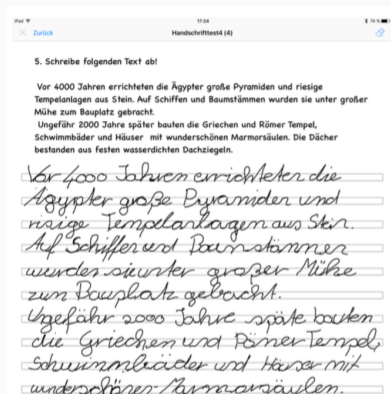 iPad 17:24 74 %
Zurück Handschrifttest4 (4)
5. Schreibe folgenden Text ab!
Vor 4000 Jahren errichteten die Ägypter große Pyramiden und riesige
Tempelanlagen aus Stein. Auf Schiffen und Baumstämmen wurden sie unter großer
Mühe zum Bauplatz gebracht.
Ungefähr 2000 Jahre später bauten die Griechen und Römer Tempel,
Schwimmbäder und Häuser mit wunderschönen Marmorsäulen. Die Dächer
bestanden aus festen wasserdichten Dachziegeln.
Vor 4000 Jahren errichteten die
Ägypter große Pyramiden und
risige Tempelanlagen aus Stein.
Auf Schiffen und Baunstännen
wurden sie unter großer Mühe
zum Bauplatz gebracht.
Ungefähr 2000 Jahre späte bauten
die Griechen und Römer Tempel,
Schwimmbäder und Häuser mit
wunderschönen Marmorsäulen.